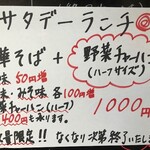 サタデーランチ@
華そば + 野菜チャーハン
(ハーフサイズ)
味 50円増
味・みそ味 各100円増 1000円
ャーハン(ハーフ)
400円も承ります。
量限定!! なくなり次第終了いたし